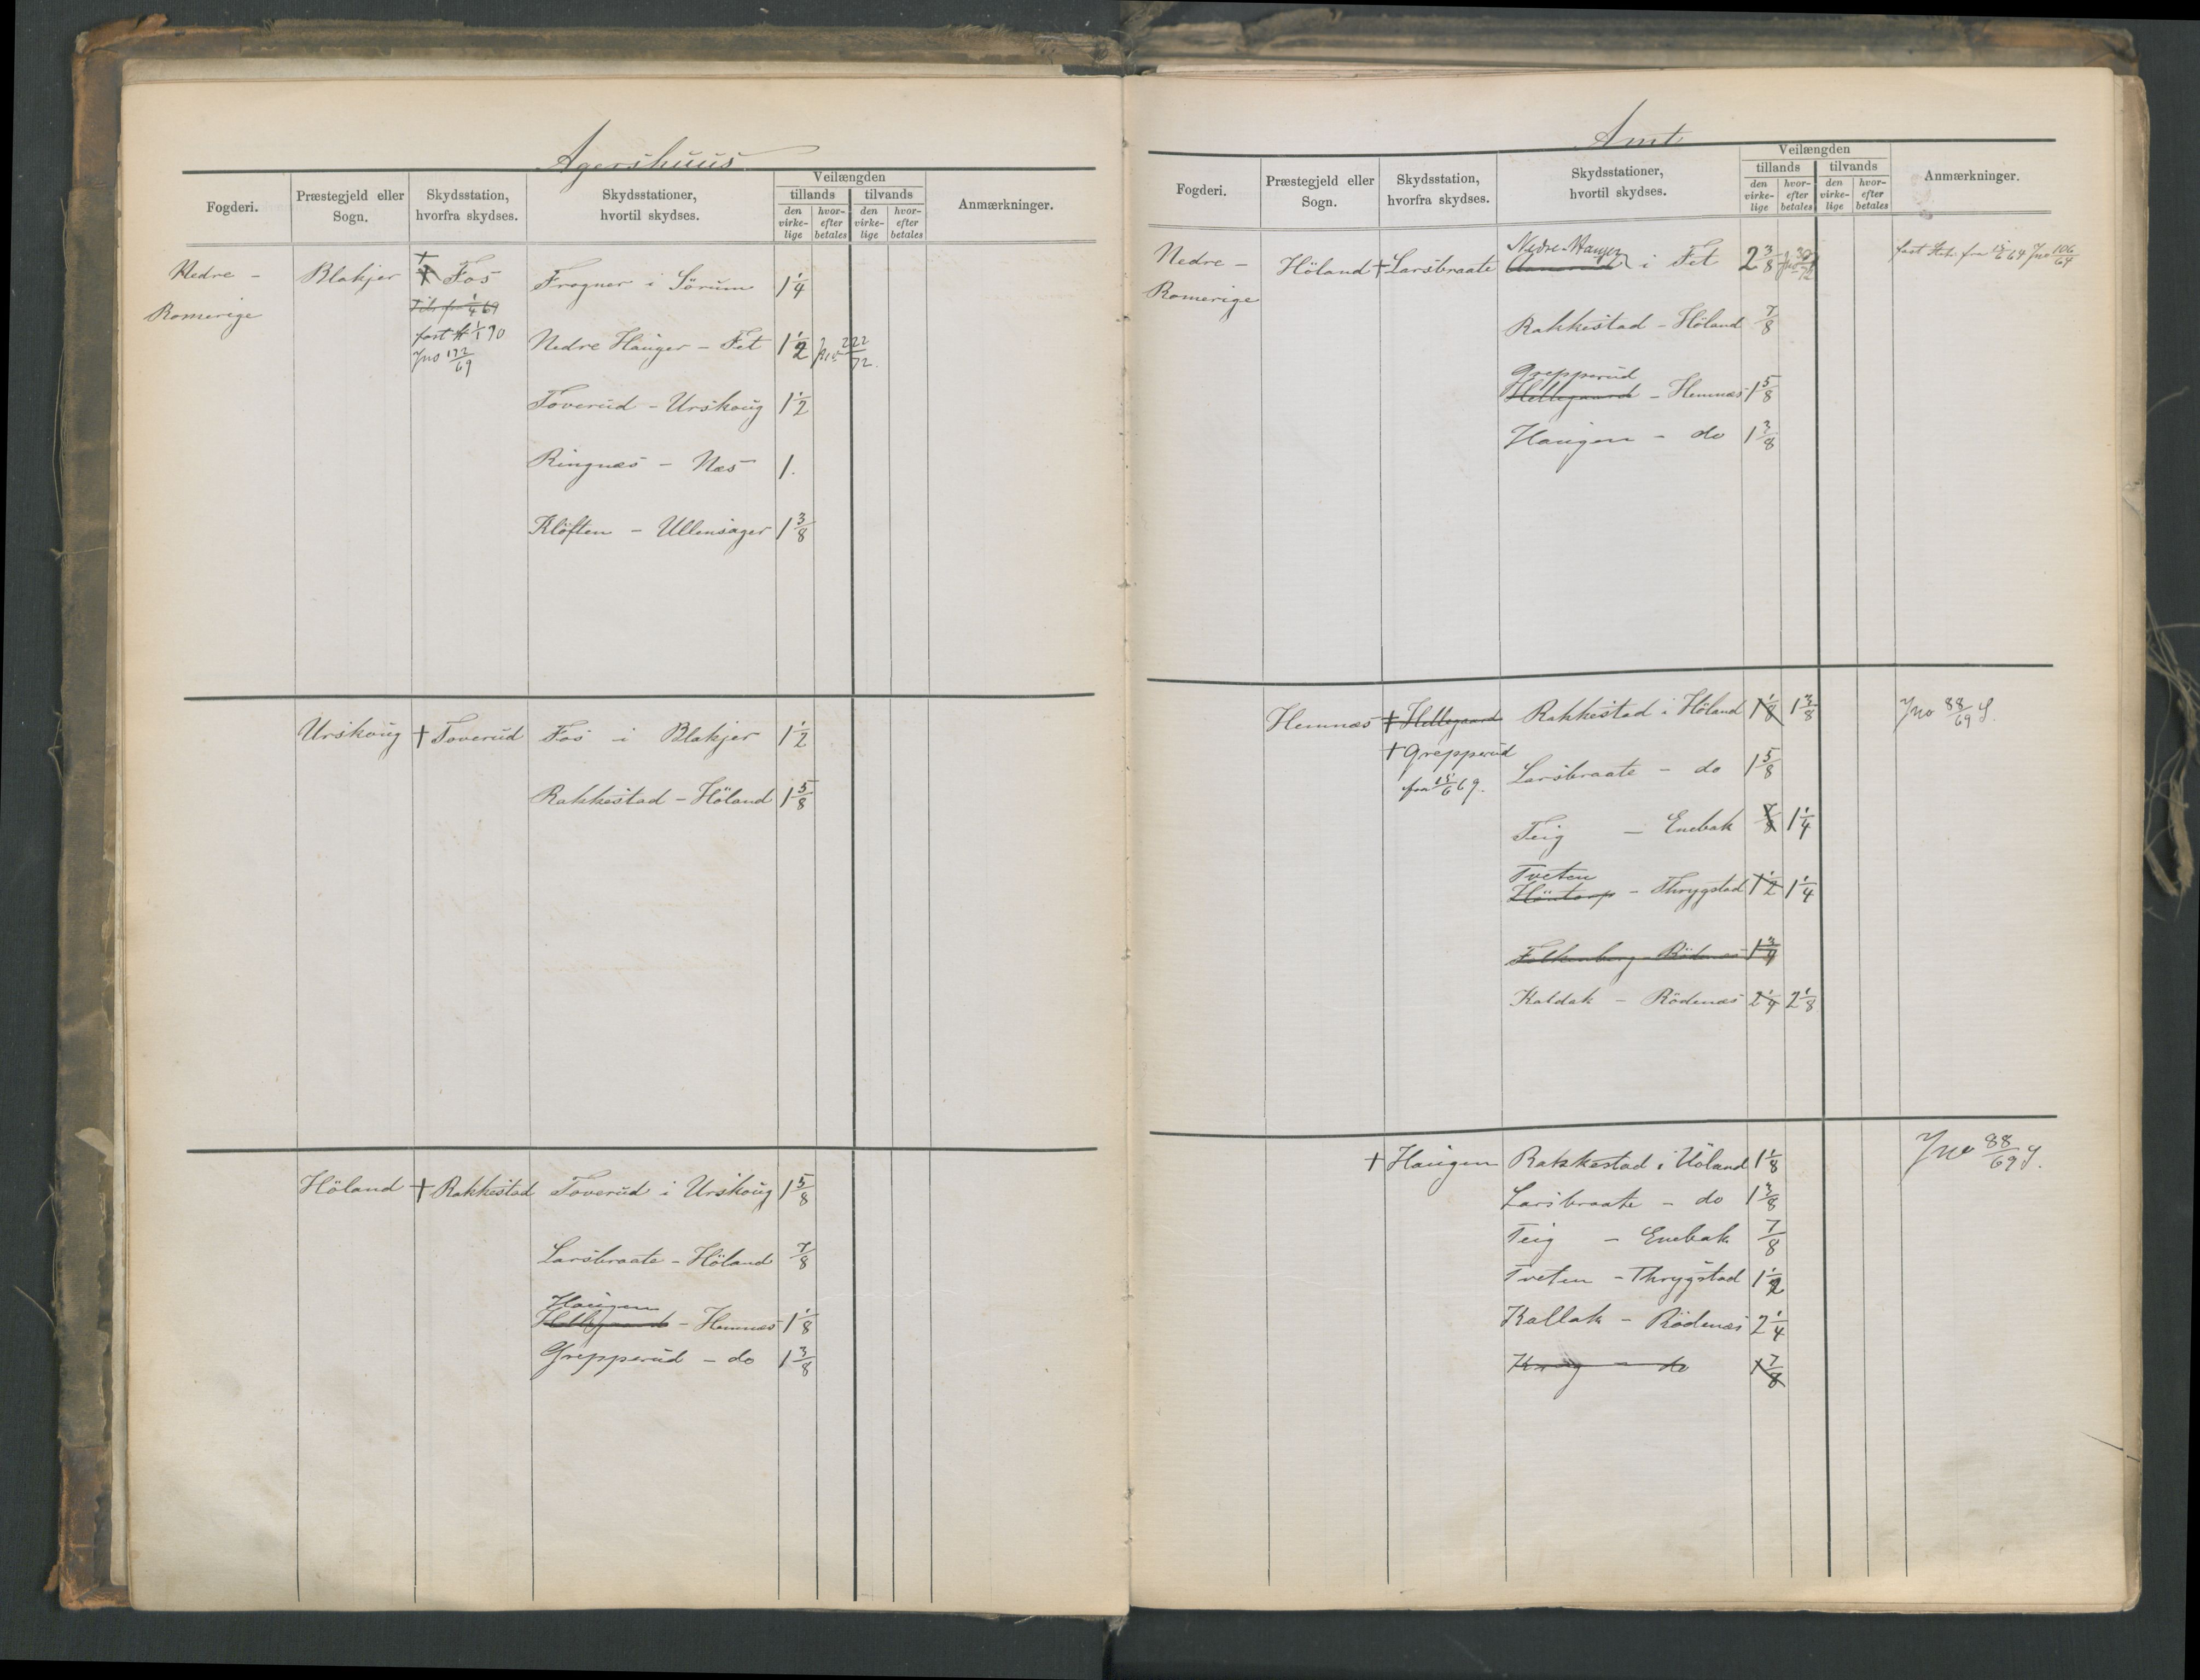 Agershuus
Fogderi.
Præstegjeld eller Sogn.
Skydsstation, hvorfra skydses.
Skydsstationer, hvortil skydses.
Veilængden
tillands tilvands
den virkelige hvorefter betales den virkelige hvorefter betales
Anmærkninger.
Nedre - Romerige
Blakjer † Fos Frogner i Sörum 1 1/4
fast st 1/1 70
Jno 133/69
Nedre Hauger - Fet 1 1/2 Jno 222/72.
Toverud - Urskoug 1 1/2
Ringnæs - Næs 1.
Klöften - Ullensager 1 3/8
Urskoug † Toverud Fos i Blakjer 1 1/2
Rakkestad - Höland 1 5/8
Höland † Rakkestad Toverud i Urskoug 1 5/8
Larsbraate - Höland 7/8
Haugen
Hellegaard - Hemnæs 1 1/8
Grepperud - do 1 3/8
Amt
Fogderi.
Præstegjeld eller Sogn.
Skydsstation, hvorfra skydses.
Skydsstationer, hvortil skydses.
Veilængden
tillands tilvands
den virkelige hvorefter betales den virkelige hvorefter betales
Anmærkninger.
Nedre - Romerige
Nedre-Hauger
Höland † Larsbraate i Fet 2 3/8 fast Stat. fra 64 Jno 106/64
Rakkestad - Höland 7/8
Grepperud
Hellegaard - Hemnæs 1 5/8
Haugen - do 1 3/8
Hemnæs † Hellegaard Rakkestad i Höland 1 1/8 1 3/8 Jno 88/69 S.
† Grepperud
fra 15/6 69.
Larsbraate - do 1 5/8
Teig - Enebak 7/8 1 1/4
Tveten
Höntorp - Thrygstad 1 1/2 1 1/4
Folkenborg - Rödenæs 1 3/4
Kaldak - Rödenæs 2 1/4 2 1/8
† Haugen Rakkestad i Höland 1 1/8 Jno 88/69 S.
Larsbraate - do 1 3/8
Teig - Enebak 7/8
Tveten - Thrygstad 1 1/2
Kallak - Rödenæs 2 1/4
Krog - do 1 7/8